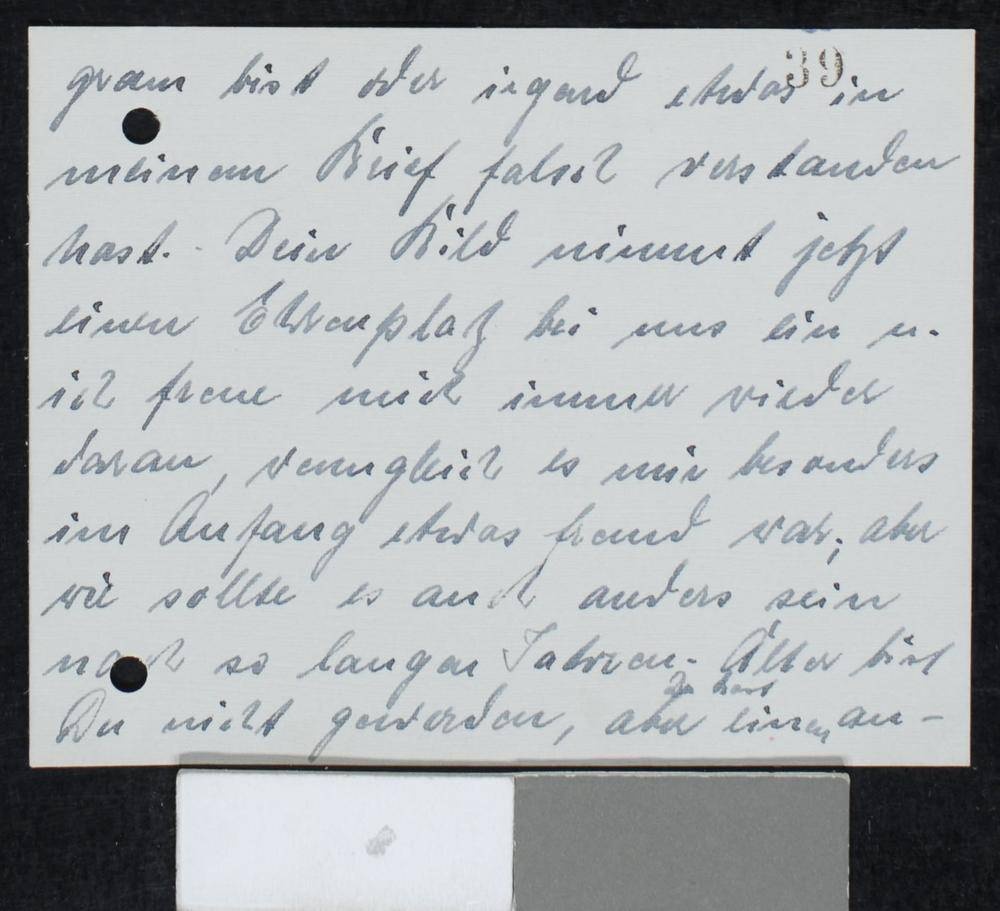 39
gram bist oder irgend etwas in
meinem Brief falsch verstanden
hast. - Dein Bild nimmt jetzt
einen Ehrenplatz bei uns ein u.
ich freue mich immer wieder
daran, wenngleich es mir besonders
im Anfang etwas fremd war; aber
wie sollte es auch anders sein
nach so langen Jahren. Älter bist
Du hast
Du nicht geworden, aber einen an-